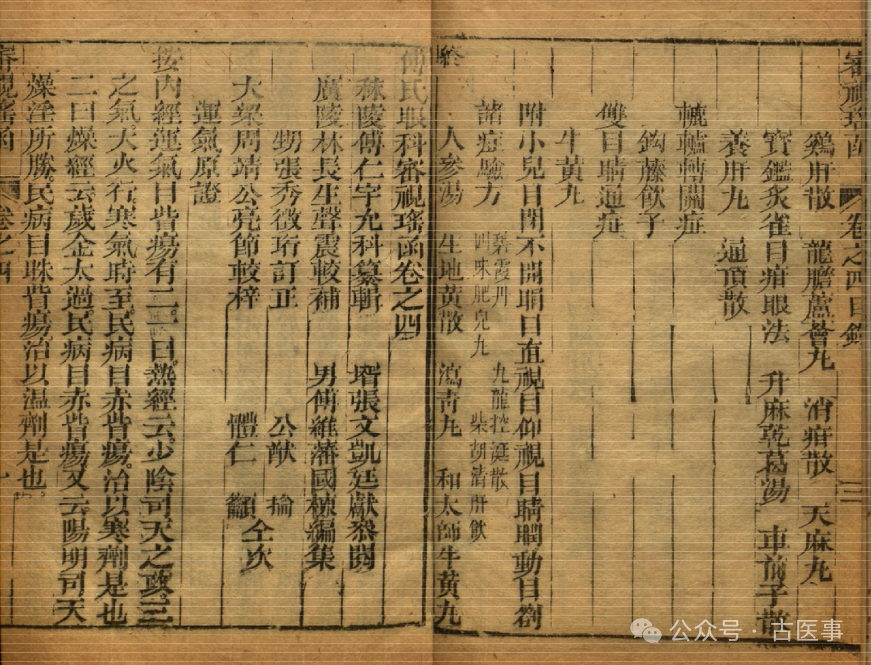 審視瑤函 卷之四目錄 三
鷄肝散 龍膽蘆薈丸 消疳散 天麻丸
寶鑑炙雀目疳眼法 升麻乾葛湯 車前子散
養肝丸 通頂散
轆轤轉關症
鈎藤飲子
雙目睛通症
牛黃丸
附小兒目閉不開睛目直視目仰視目睛瞤動目劄
諸症驗方 碧霞丹 九龍控涎散
四味肥兒丸 柴胡清肝飲
人參湯 生地黃散 瀉青丸 和太師牛黃丸
終
傅氏眼科審視瑤函卷之四
秣陵傅仁宇允科纂輯 壻張文凱廷獻叅閱
廣陵林長生聲震較補 男傅維藩國棟編集
甥張秀徵珩訂正 公猷 掄
大梁周靖公亮節較梓 體仁 籲 仝次
運氣原證
按內經運氣目眥瘍有二一曰熱經云少陰司天之政三
之氣大火行寒氣時至民病目赤眥瘍治以寒劑是也
二曰燥經云歲金太過民病目赤眥瘍又云陽明司天
燥淫所勝民病目眛眥瘍治以溫劑是也
審視瑤函 卷之四 一
公众号 · 古医事